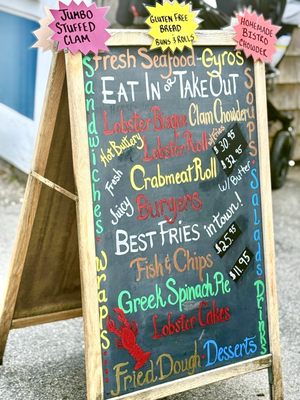 JUMBO
STUFFED
CLAM
GLUTEN FREE
BREAD
BUNS & ROLLS
HOMEMADE
BISTRO
CHOUDEE
Fresh Seafood-Gyros
EAT IN or TAKE OUT
Lobster Bisque Clam Chowder
Hot Buttery Lobster Roll w/Fries $30.95
Fresh Crabmeat Roll $32.95
w/Butter
Juicy Burgers
BEST FRIES in town!
Fish & Chips $25.95
$11.95
Greek Spinach Pie
Lobster Cakes
Fried Dough Desserts
Sandwiches Wraps
Soups Salads Drinks